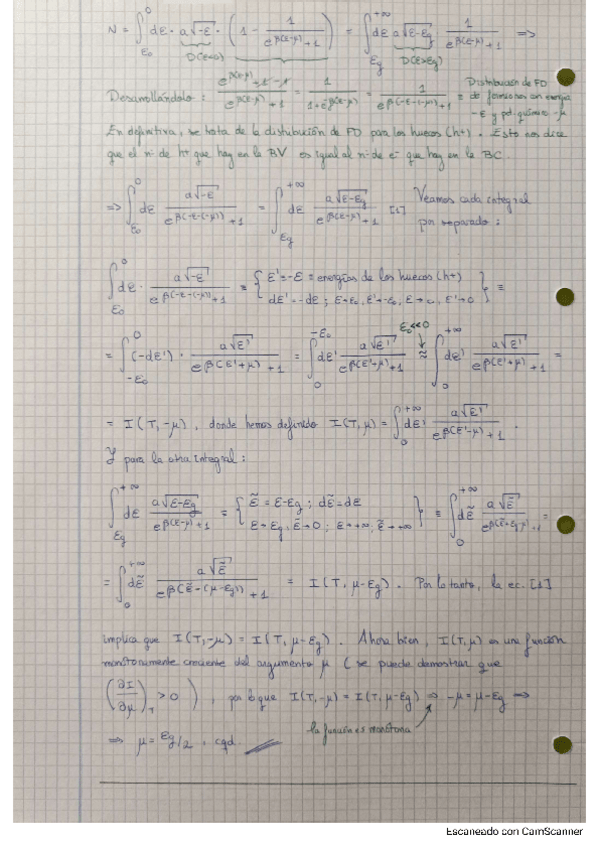 N = ∫_{ε₀}^{0} dε · a√-ε · (1 - 1/(e^{β(ε-μ)}+1)) = ∫_{Eg}^{+∞} dε a√ε-Eg · 1/(e^{β(ε-μ)}+1) =>
D(ε<0) D(ε>Eg)
Desarrollándolo : (e^{β(ε-μ)}+1-1)/(e^{β(ε-μ)}+1) = 1/(1+e^{-β(ε-μ)}) = 1/(e^{β(-ε-(-μ))}+1) ≡ Distribución de FD de fermiones con energía -ε y pot. químico -μ
En definitiva, se trata de la distribución de FD para los huecos (h+). Esto nos dice
que el nº de h+ que hay en la BV es igual al nº de e- que hay en la BC.
=> ∫_{ε₀}^{0} dε a√-ε/(e^{β(-ε-(-μ))}+1) = ∫_{Eg}^{+∞} dε a√ε-Eg/(e^{β(ε-μ)}+1) [1] Veamos cada integral
por separado :
∫_{ε₀}^{0} dε · a√-ε/(e^{β(-ε-(-μ))}+1) = { ε'=-ε ≡ energías de los huecos (h+)
dε'=-dε ; ε→ε₀, ε'→-ε₀, ε→0, ε'→0 } =
= ∫_{-ε₀}^{0} (-dε') · a√ε'/(e^{β(ε'+μ)}+1) = ∫_{0}^{-ε₀} dε' a√ε'/(e^{β(ε'+μ)}+1) ≈ ∫_{0}^{+∞} dε' a√ε'/(e^{β(ε'+μ)}+1) =
ε₀<<0
= I(T,-μ), donde hemos definido I(T,μ) = ∫_{0}^{+∞} dε' a√ε'/(e^{β(ε'-μ)}+1) .
Y para la otra integral :
∫_{Eg}^{+∞} dε a√ε-Eg/(e^{β(ε-μ)}+1) = { ε̃ = ε-Eg ; dε̃=dε
ε→Eg, ε̃→0 ; ε→+∞, ε̃→+∞ } = ∫_{0}^{+∞} dε̃ a√ε̃/(e^{β(ε̃+Eg-μ)}+1) =
= ∫_{0}^{+∞} dε̃ a√ε̃/(e^{β(ε̃-(μ-Eg))}+1) = I(T, μ-Eg). Por lo tanto, la ec. [1]
implica que I(T,-μ) = I(T, μ-Eg). Ahora bien, I(T,μ) es una función
monótonamente creciente del argumento μ (se puede demostrar que
(∂I/∂μ)_T > 0 ), por lo que I(T,-μ) = I(T, μ-Eg) => -μ = μ-Eg =>
la función es monótona
=> μ = Eg/2 , cqd.
Escaneado con CamScanner